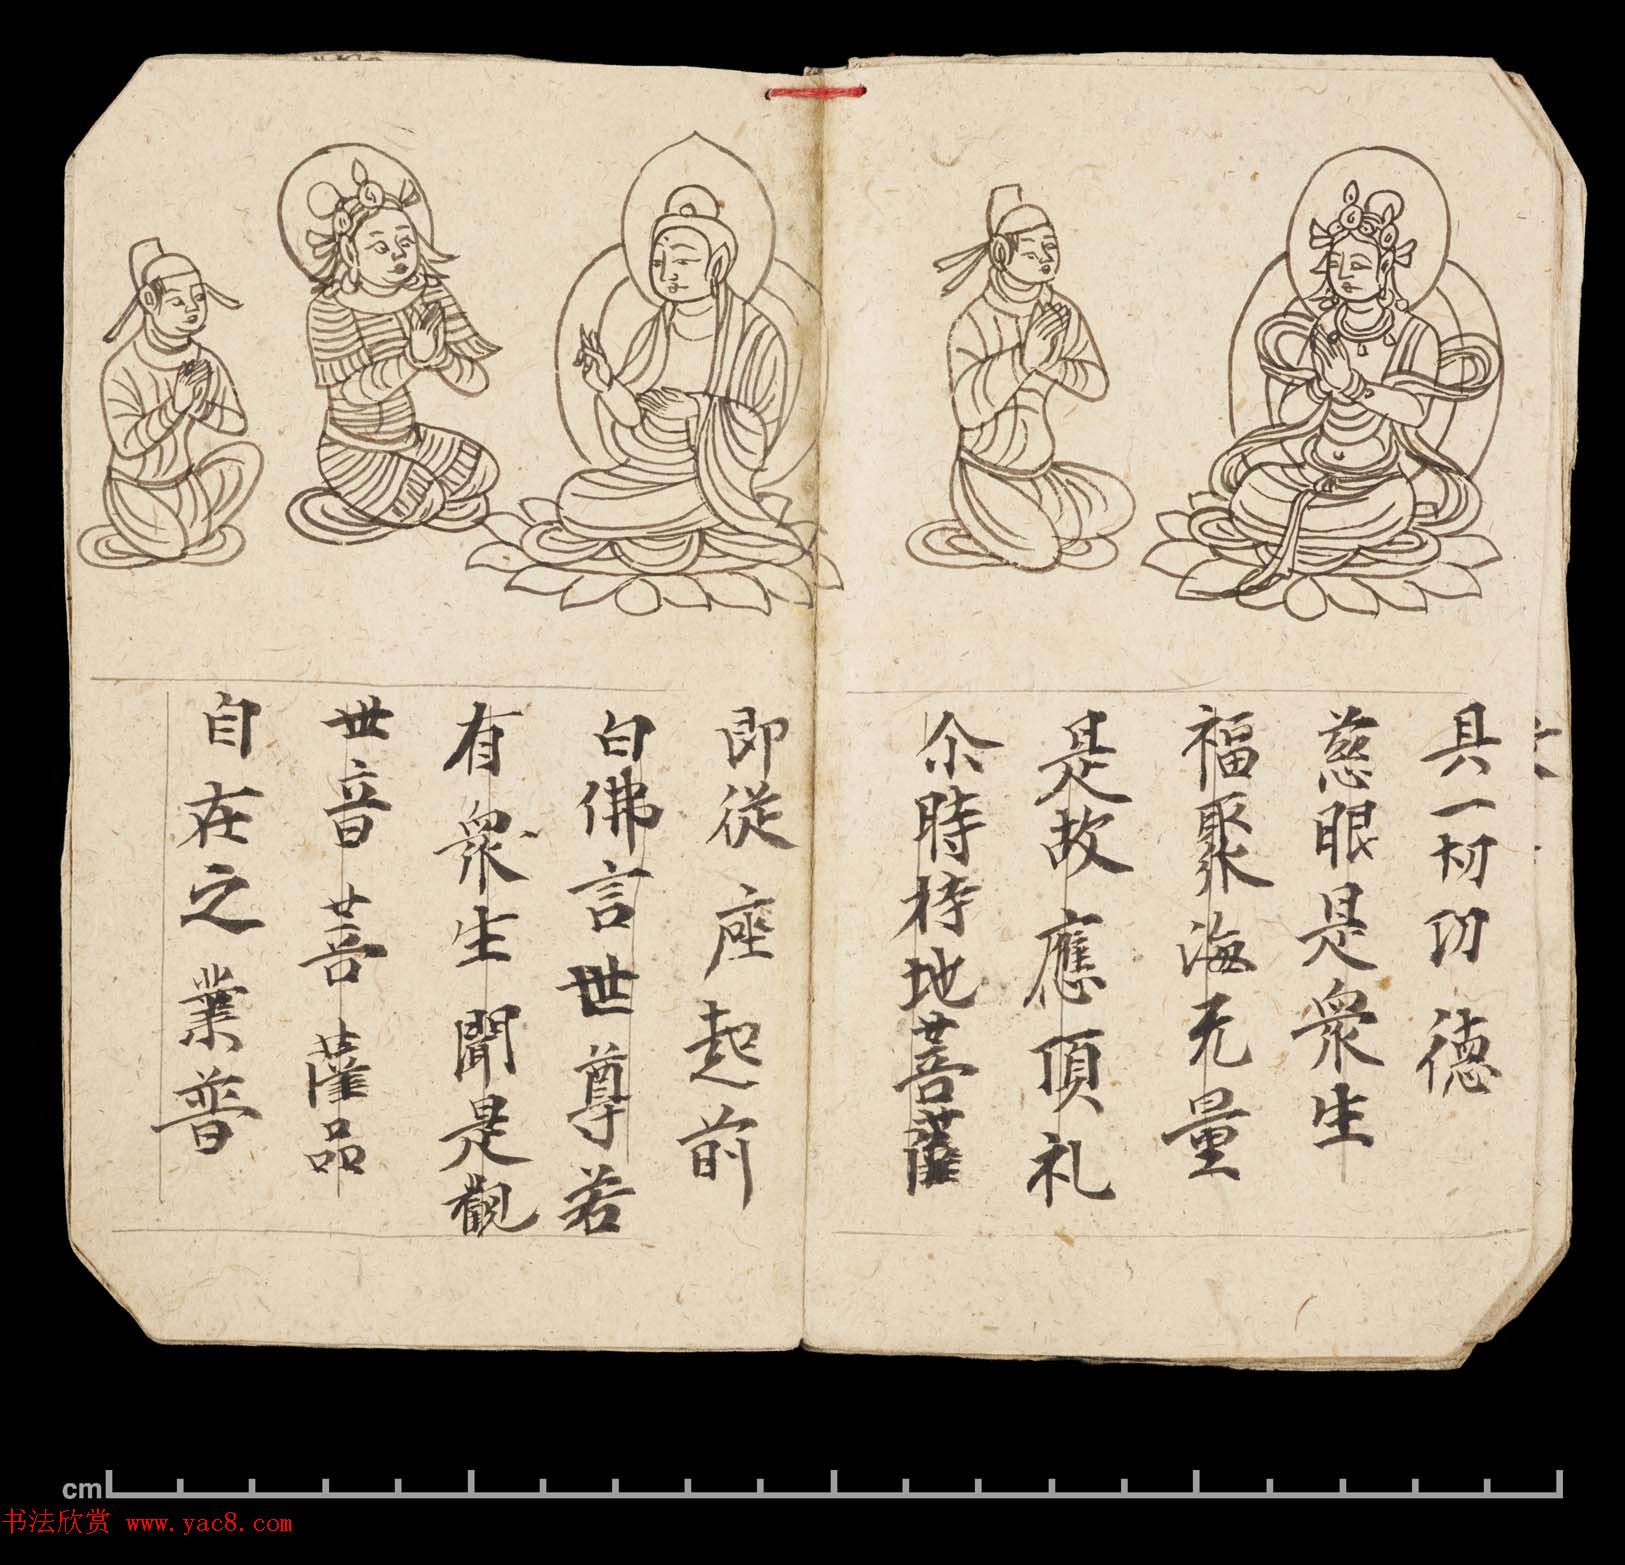 具一切功德
慈眼是衆生
福聚海无量
是故應頂礼
尒時持地菩薩
即從座起前
白佛言世尊若
有衆生聞是觀
世音菩薩品
自在之業普
cm
书法欣赏 www.yac8.com